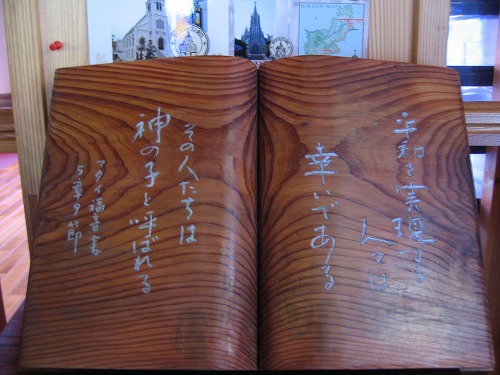 平和を実現する
人々は
幸いである
その人たちは
神の子と呼ばれる
マタイ福音書
5章9節